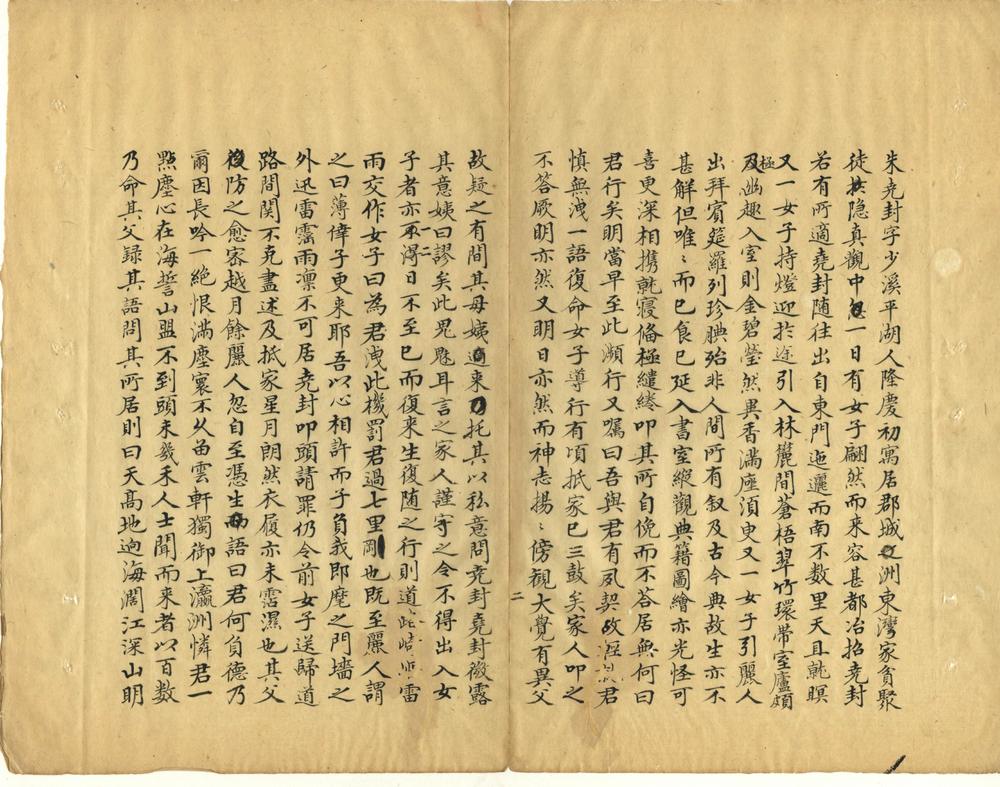 朱堯封字少溪平湖人隆慶初寓居郡城之洲東灣家貧聚
徒於隐真觀中一日有女子翩然而来容甚都冶招尭封
若有所適尭封随往出自東門迤邐而南不数里天且就暝
又一女子持燈迎扵途引入林麓間蒼梧翠竹環帶室廬頗
極幽趣入室則金碧瑩然異香滿座湏臾又一女子引麗人
出拜賓筵羅列珍腆殆非人間所有叙及古今典故生亦不
甚解但唯〻而已食已延入書室縱觀典籍圖繪亦光怪可
喜更深相携就寝俻極繾綣叩其所自俛而不荅居無何曰
君行矣明當早至此瀕行又囑曰吾與君有夙契故君
慎無洩一語復命女子導行有頃抵家已三鼓矣家人叩之
不答厥明亦然又明日亦然而神志揚〻傍觀大覺有異父
二
故疑之有間其母姨適来乃托其以私意問尭封堯封微露
其意姨曰謬矣此鬼魅耳言之家人謹守之令不得出入女
子者亦不淂一二日不至已而復来生復随之行則道雷
雨交作女子曰為君洩此機罰君過七里也既至麗人謂
之曰薄倖子更来耶吾以心相許而子負我即麾之門墙之
外迅雷霪雨凛不可居尭封叩頭請罪仍令前女子送歸道
路間関不克盡述及抵家星月朗然衣履亦未霑濕也其父
後防之愈宻越月餘麗人忽自至憑生而語曰君何負德乃
爾因長吟一絶恨滿塵寰不久留雲軒獨御上瀛洲憐君一
點塵心在海誓山盟不到頭未幾禾人士聞而来者以百数
乃命其父録其語問其所居則曰天髙地逈海濶江深山明